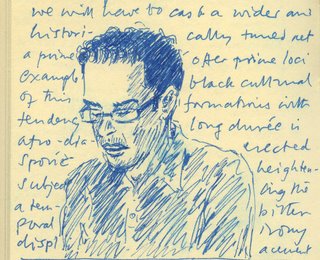 we will have to cast a wider and
histori- cally tuned net
a prime offer prime loci
example black cultural
of this formations with
tendency long durée is
afro-dia- erected
sporic heighten-
subject ing the
a tem- bitter
poral irony
displ